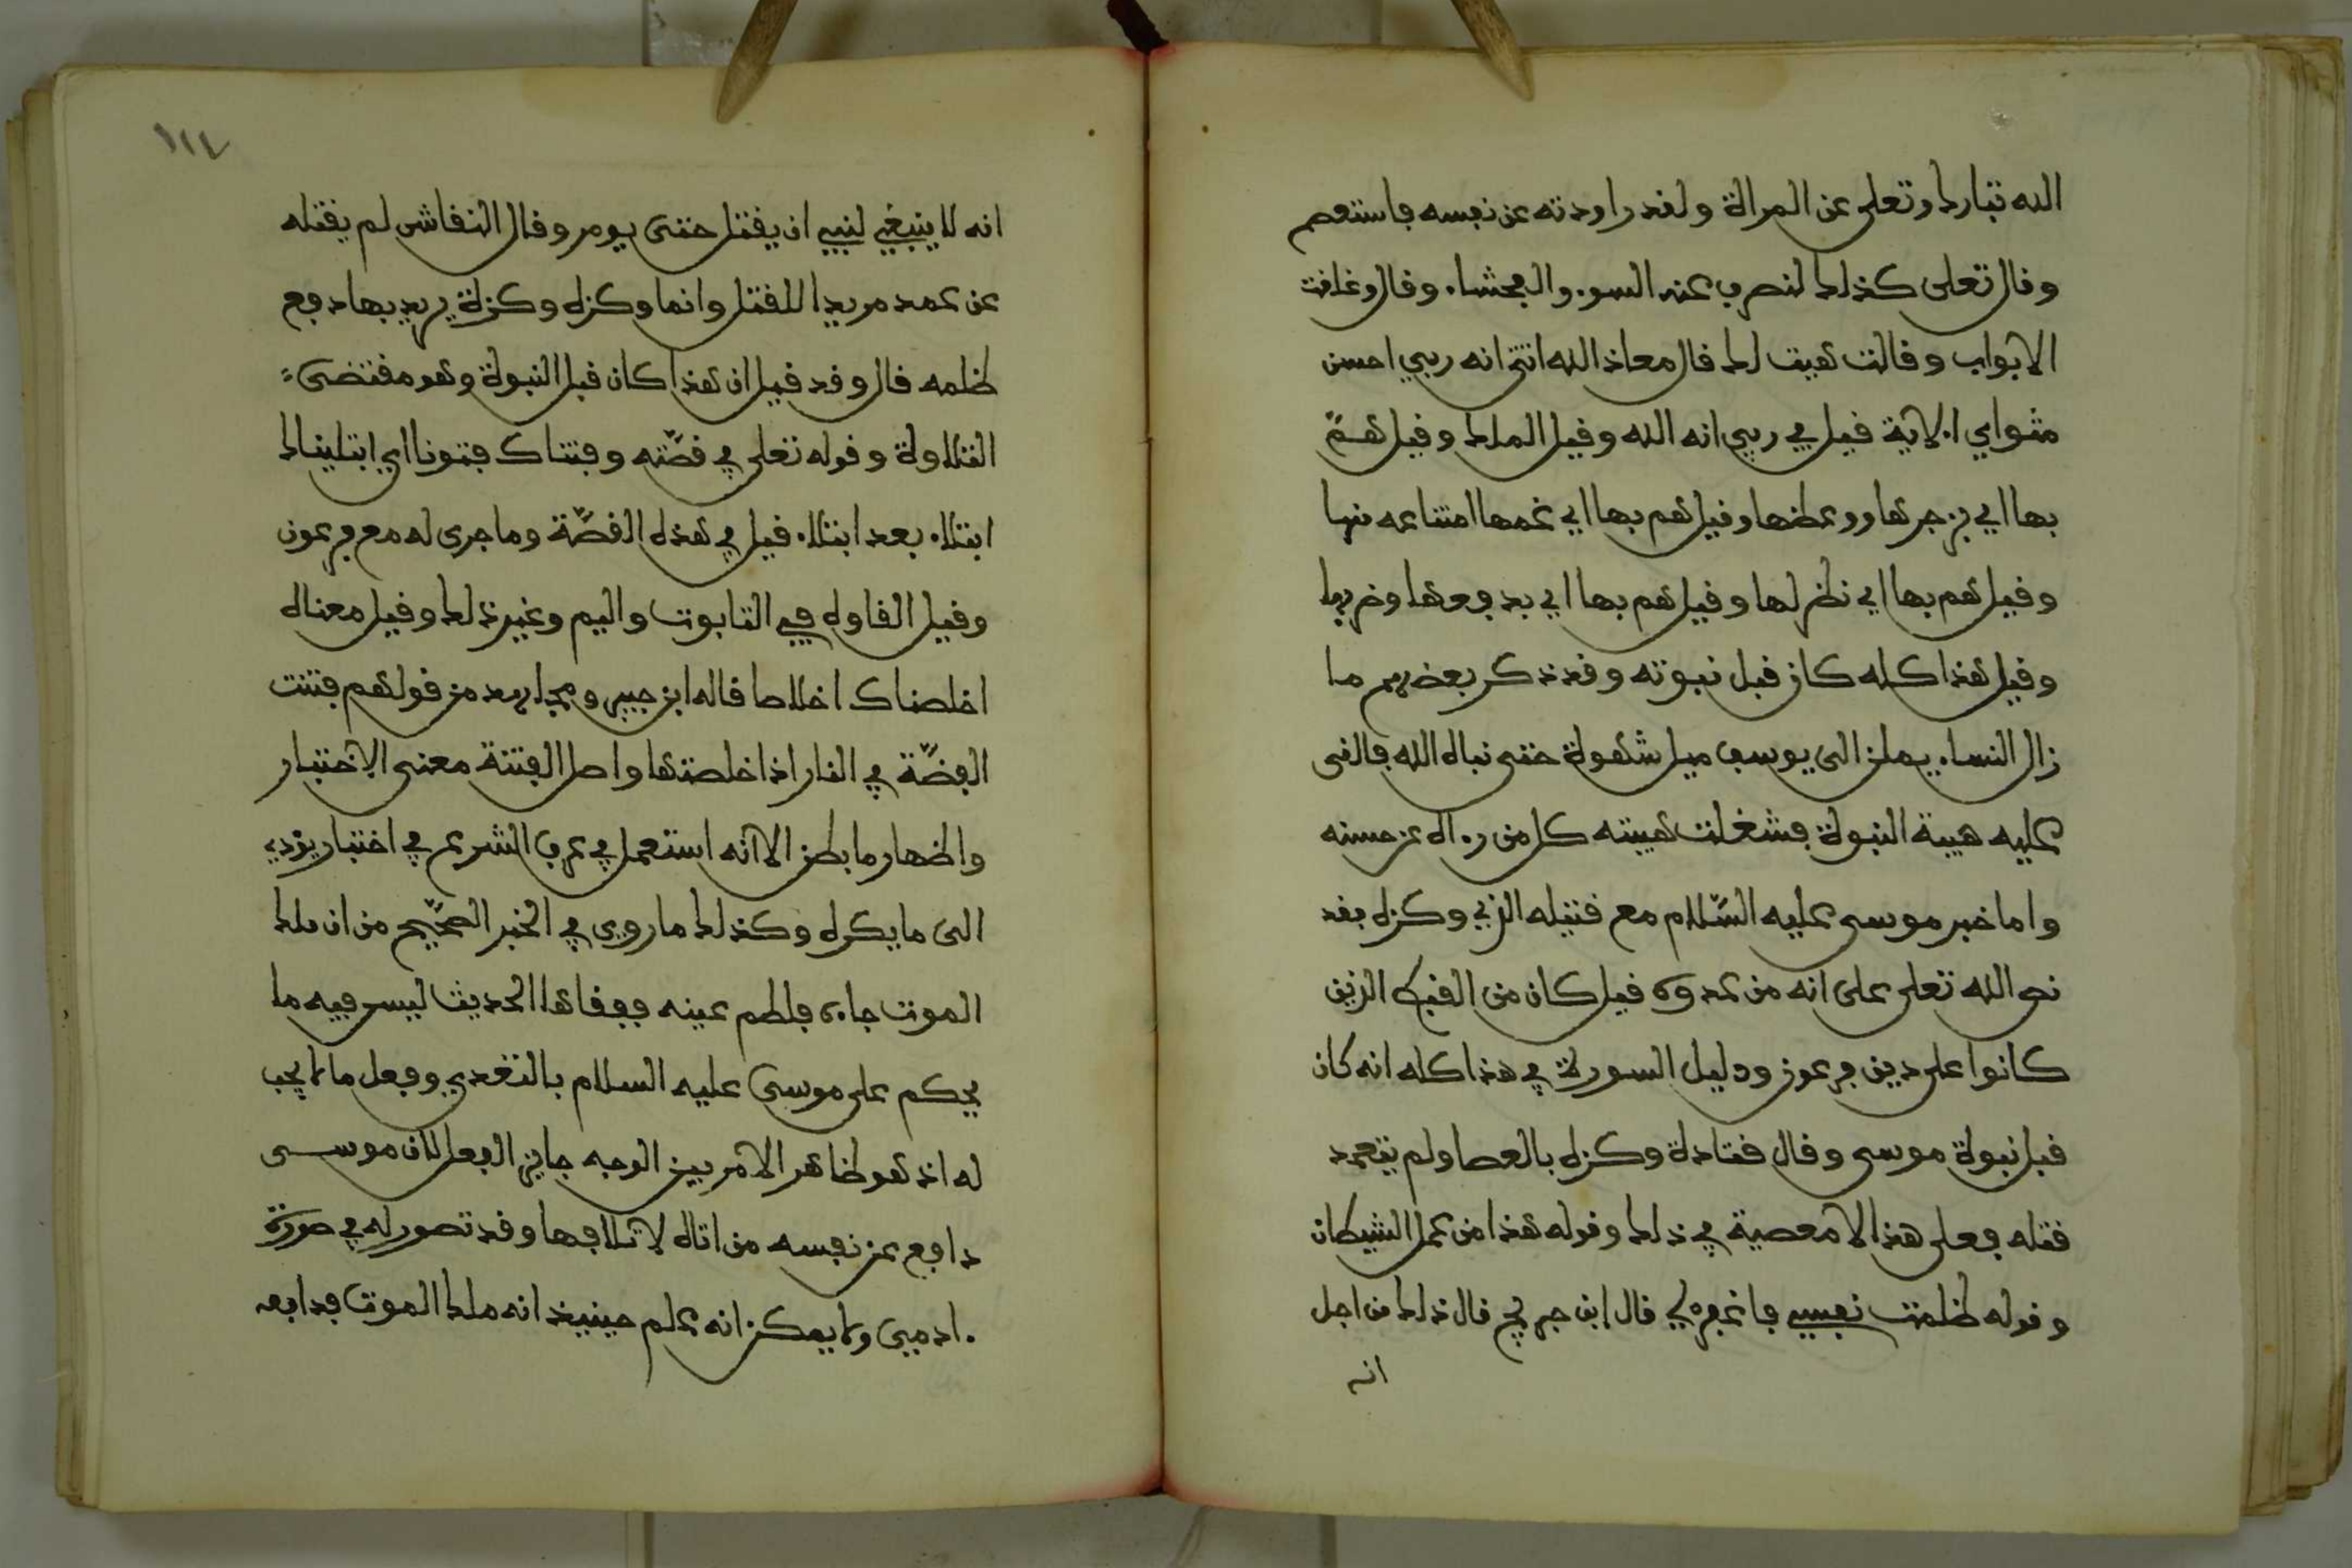 الله تبارك وتعلى عن المراة ولقد راودته عن نفسه فاستعصم
وقال تعلى كذلك لنصرف عنه السوء والفحشاء وقال وغلقت
الابواب وقالت هيت لك قال معاذ الله انه ربي احسن
مثواي الاية قيل في ربي انه الله وقيل الملك وقيل همّ
بها اي بزجرها ووعظها وقيل هم بها اي غمها امتناعه منها
وقيل هم بها اي نظر لها وقيل هم بها اي بدفعها وضربها
وقيل هذا كله كان قبل نبوته وقد ذكر بعضهم ما
زال النساء يملن الى يوسف ميل شهوة حتى نباه الله فالقى
عليه هيبة النبوة فشغلت هيبته كل من رءاه عن حسنه
واما خبر موسى عليه السّلام مع قتيله الذي وكزه فقد
نص الله تعلى على انه من عدوه قيل كان من القبط الذين
كانوا على دين فرعون ودليل السورة في هذا كله انه كان
قبل نبوة موسى وقال قتادة وكزه بالعصا ولم يتعمد
قتله فعلى هذا لا معصية في ذلك وقوله هذا من عمل الشيطان
وقوله ظلمت نفسي فاغفر لي قال ابن جريج قال ذلك من اجل
انه
١١٤
انه لا ينبغي لنبي ان يقتل حتى يومر وقال النقاش لم يقتله
عن عمد مريدا للقتل وانما وكزه وكزة يريد بها دفع
ظلمه قال وقد قيل ان هذا كان قبل النبوة وهو مقتضى
التلاوة وقوله تعلى في قصّته وفتناك فتونا اي ابتليناك
ابتلاء بعد ابتلاء قيل في هذه القصّة وما جرى له مع فرعون
وقيل القاوه في التابوت واليم وغير ذلك وقيل معناه
اخلصناك اخلاصا قاله ابن جبير ومجاهد من قولهم فتنت
الفضّة في النار اذا خلصتها واصل الفتنة معنى الاختبار
واظهار ما بطن الا انه استعمل في عرف الشرع في اختبار يؤدي
الى ما يكره وكذلك ما روي في الخبر الصحّيح من ان ملك
الموت جاءه فلطم عينه ففقاها الحديث ليس فيه ما
يحكم على موسى عليه السلام بالتعدي وفعل ما لا يجب
له اذ هو ظاهر الامر بين الوجه جايز الفعل لان موسى
دافع عن نفسه من اتاه لاتلافها وقد تصور له في صورة
ادمي ولا يمكن انه علم حينيذ انه ملك الموت فدافعه